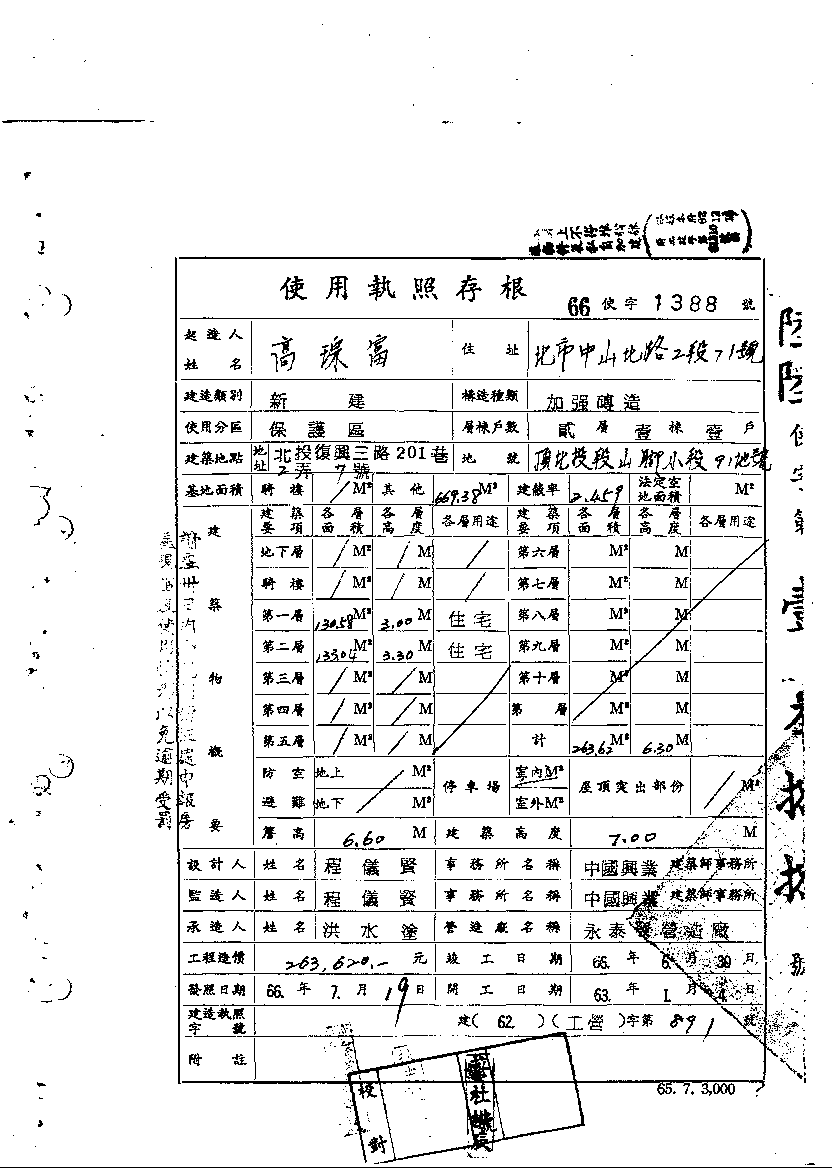 使用執照存根
66 使字 1388 號
起造人姓名 高琛富 住址 北市中山北路2段71號
建造類別 新建 構造種類 加强磚造
使用分區 保護區 層棟戶數 貳層壹棟壹戶
建築地點 地址 北投復興三路201巷2弄7號 地號 頂北投段山腳小段91地號
基地面積 騎樓 / M² 其他 669.38 M² 建蔽率 2.459 法定空地面積 M²
建築物概要
建築要項 各層面積 各層高度 各層用途 建築要項 各層面積 各層高度 各層用途
地下層 / M² / M / 第六層 M² M
騎樓 / M² / M / 第七層 M² M
第一層 130.58 M² 3.00 M 住宅 第八層 M² M
第二層 133.04 M² 3.30 M 住宅 第九層 M² M
第三層 / M² / M 第十層 M² M
第四層 / M² / M 第 層 M² M
第五層 / M² / M 計 263.62 M² 6.30 M
防空避難 地上 M² 停車場 室內 M² 屋頂突出部份 / M²
地下 M² 室外 M²
簷高 6.60 M 建築高度 7.00 M
設計人 姓名 程儀賢 事務所名稱 中國興業 建築師事務所
監造人 姓名 程儀賢 事務所名稱 中國興業 建築師事務所
承造人 姓名 洪水塗 營造廠名稱 永泰 營造廠
工程造價 263,620.- 元 竣工日期 66. 年 6. 月 30 日
發照日期 66. 年 7. 月 19 日 開工日期 63. 年 1. 月 4. 日
建造執照字號 建( 62. )(工營)字第 891 號
附註
65. 7. 3,000
校對
以免逾期受罰